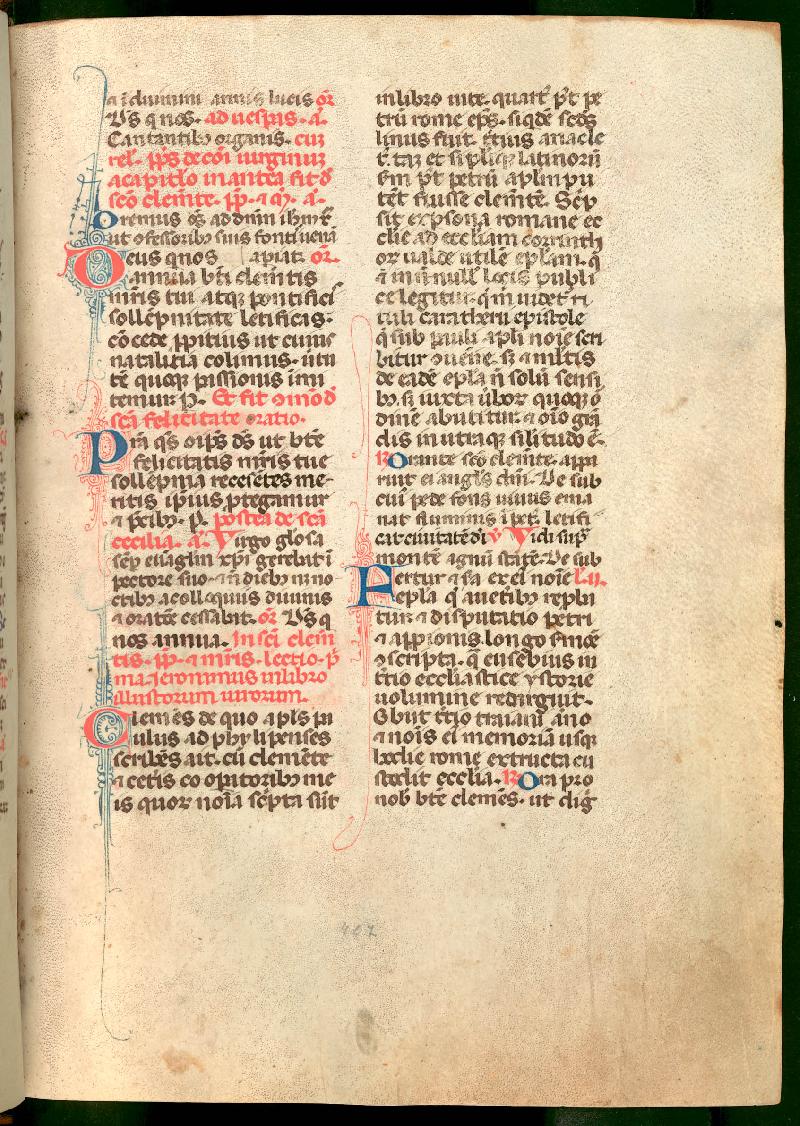 Vs q nos. ad uesꝑas. a.
Cantantibꝰ organis. cur
rel. pp̄s de cōi uirginuʒ
a capitl̓o in antea fit d̓
scō clemēte. pp̄. ⁊ m̄. a.
Oremus oēs ad dnm ihm x̄
ut ɔfessoribꝫ suis fontē uenā
Deus qui nos apiat. or̄.
annua bt̄i clemētis
mr̄is tui atqꝫ pontificis
sollēpnitate letificas.
cōcede ppitius ut cuius
natalitia colimus. uirtu
tē quoqꝫ passionis imi
temur. p. Et fit ɔmō d̓
scā felicitate oratio.
Pr̄a qs oīps ds ut bt̄e
felicitatis mr̄is tue
sollēpnia recēsētes me
ritis ip̄ius ꝓtegamur
⁊ p̄cibꝫ. p. postea de scā
cecilia. a. Virgo gl̓osa
sēp euāgliū xp̄i gerebat ī
pectore suo. ⁊ ñ diebꝫ nō no
ctibꝫ a colloquiis diuinis
⁊ oratōe cessabat. or̄. Ds q
nos annua. In scī clem̄
tis. pp̄. ⁊ mr̄is. lectio. p̄
ma. Ieronimus in libro
illustorum uirorum.
Clemēs de quo apl̓s pa
ulus ad phylipenses
scribēs ait. cū clemēte
⁊ cet̓is coopatoribꝫ me
is quoꝝ noīa sc̄pta sūt
in libro uite. quart̓ pꝰt pe
trū rome ep̄s. siqdē scds
linus fuit. t̓tius anacle
t̓. tāʒ et si pliqꝫ latinorū
scdm pꝰt petrū aplm pu
tēt fuisse clemētē. Scp̄
sit ex psona romane ec
clie ad ecciliam corinth
oꝝ ualde utilē epl̓am. q̄
⁊ in ñnull̓ locis publi
ce legitur. q̄ m̄ uidet̄
tuli carathery epistole
q̄ sub pauli apl̓i noīe scri
bitur ɔuenire. sꝫ ⁊ mltis
de eadē epl̓a ñ solū sensi
bꝫ. sꝫ iuxta uerboꝝ quoqꝫ o
dinē abutitur. ⁊ oīo grā
dis in utraqꝫ silitudo ē.
℟. Orante scō clemēte. appa
ruit ei angl̓s dn̄i. De sub
cuiꝰ pede fons uiuus ema
nat fluminis īpetꝰ letifi
cat ciuitatē di. ℣. Vidi sup̄
montē agnū stātē. De sub
Fertur ⁊ ⁊ ei noīe l. ii.
epl̓a q̄ a uet̓ibꝫ reprobat
tur. ⁊ disputatio petri
⁊ appionis longo smōe
ɔscripta. q̄ eusebius in
t̓tio eccl̓iastice ystorie
uolumine redarguit.
Obiit t̓tio traiani āno
⁊ noīs ei memoriā usqꝫ
hodie rome extructa cu
stodit ecc̓lia. ℟. Ora pro
nob̓ bt̄e clemēs. ut dig
407